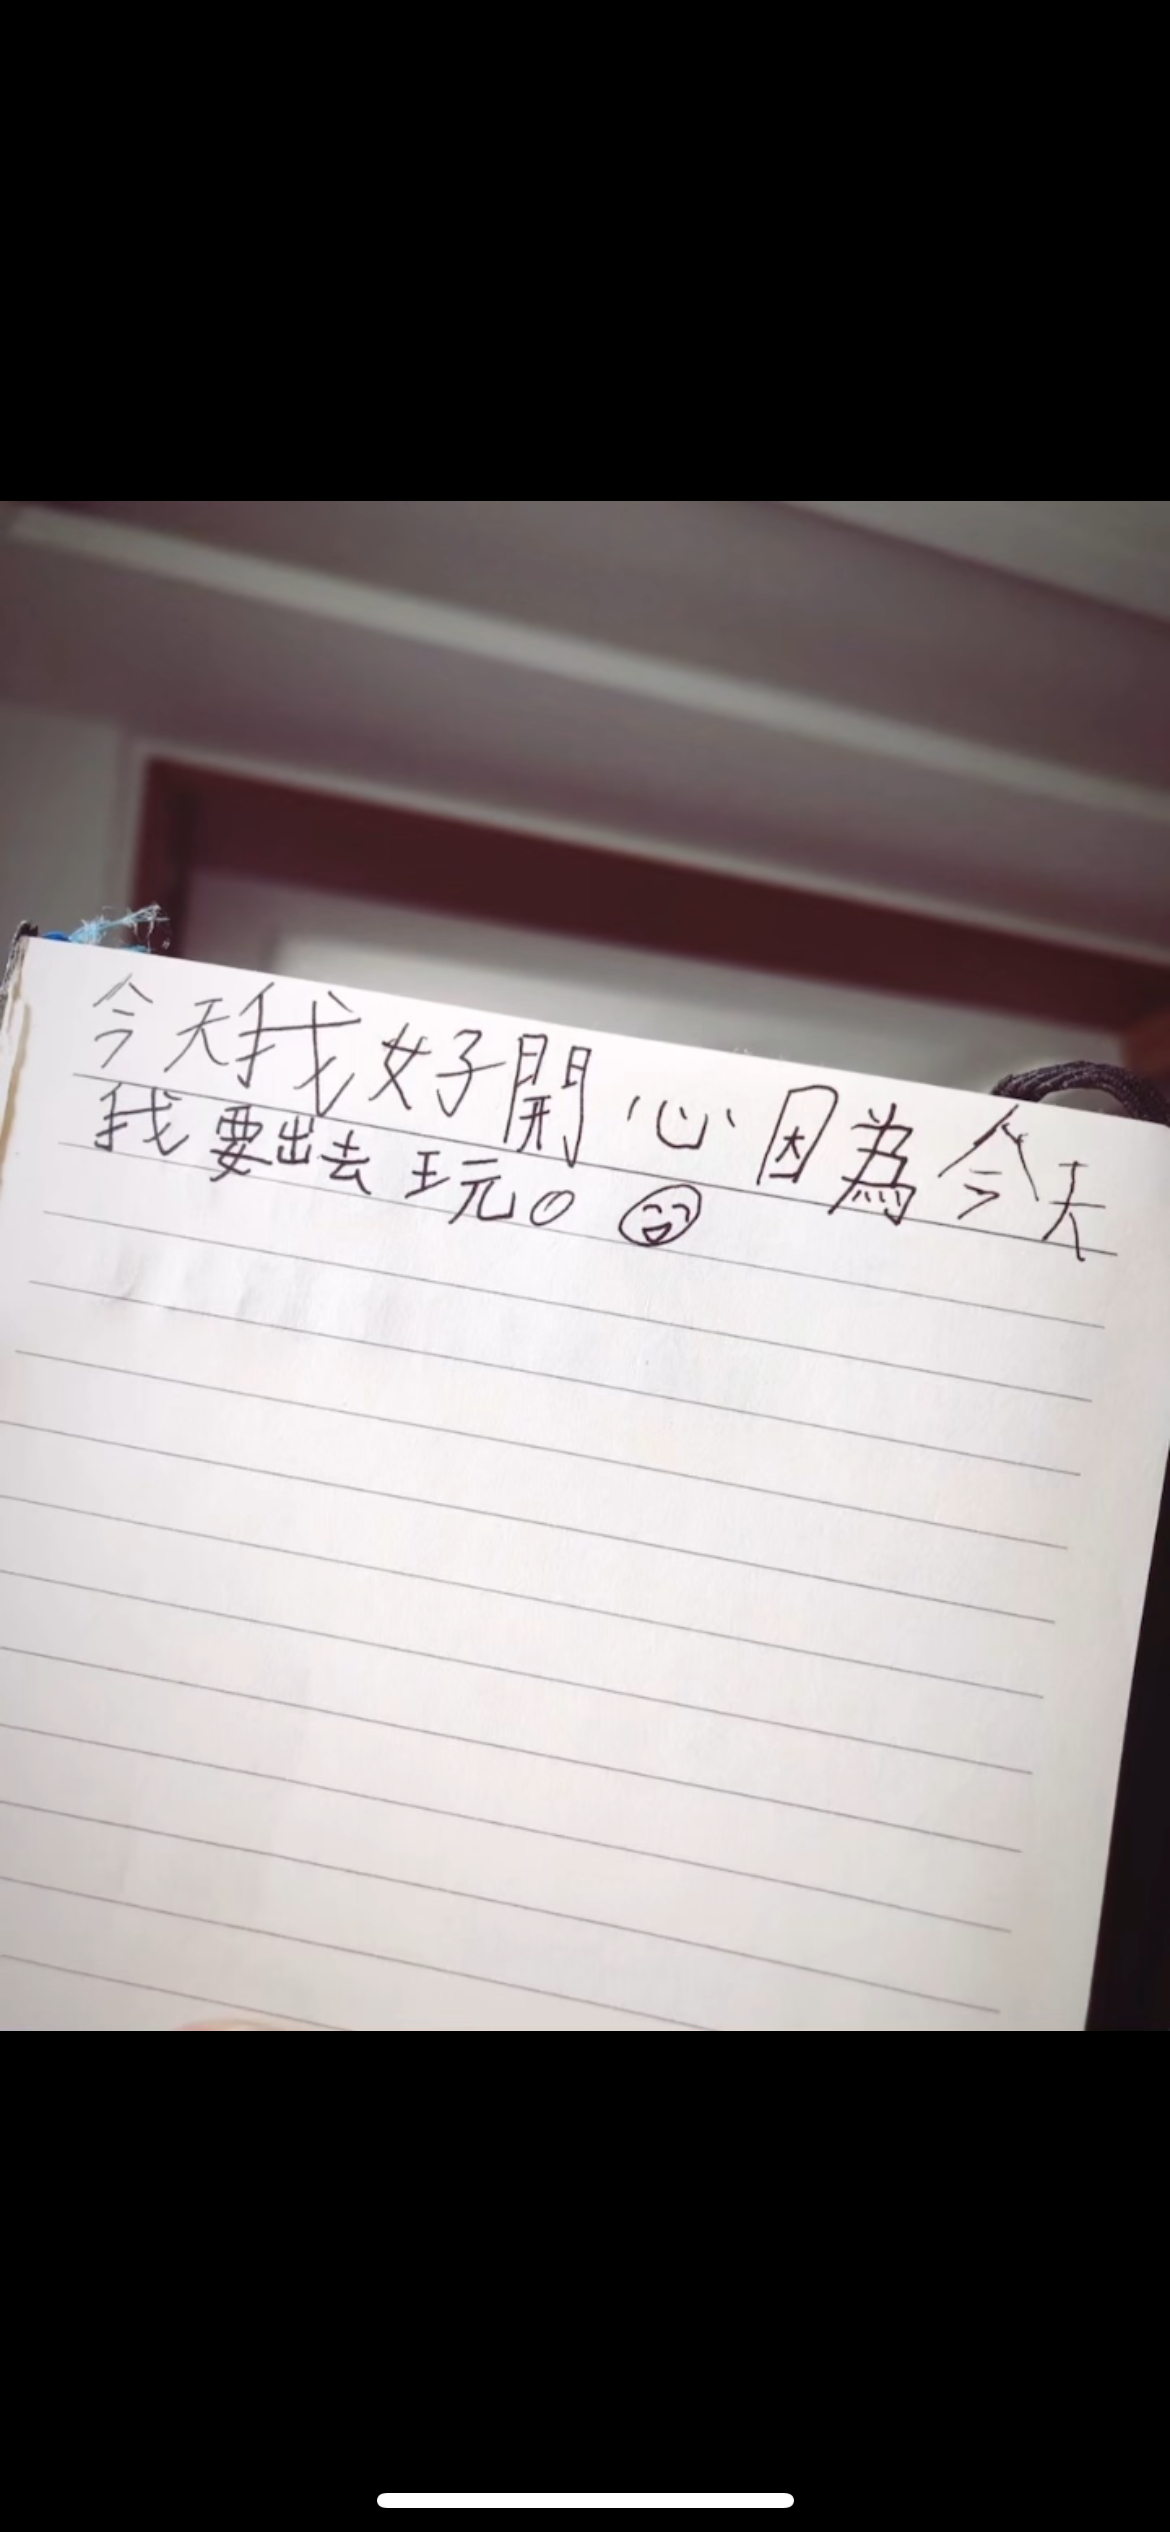 今天我好開心因為今天
我要出去玩。